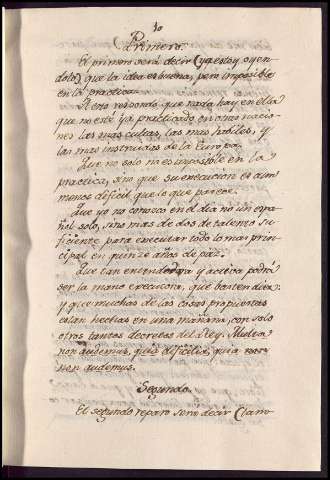 10
Primero.
El primero será decir (ya estoy oyen-
dolo) que la idea es buena, pero imposible
en la practica.
A esto respondo que nada hay en ella
que no esté ya practicado en otras nacio-
nes las mas cultas, las mas habiles, y
las mas instruidas de la Europa.
Que no solo no es imposible en la
practica, sino que su execucion es aun
menos dificil que lo que parece.
Que yo no conosco en el dia no un espa-
ñol solo, sino mas de dos de talento su-
ficiente para executar todo lo mas prin-
cipal en quinze años de paz.
Que tan entendedora y activa podrá
ser la mano executora, que basten dias:
y que muchas de las cosas propuestas
están hechas en una mañana, con solo
otros tantos decretos del Rey. Multa
non audemus, quia dificilia, quia
non audemus.
Segundo.
El segundo reparo será decir (claro